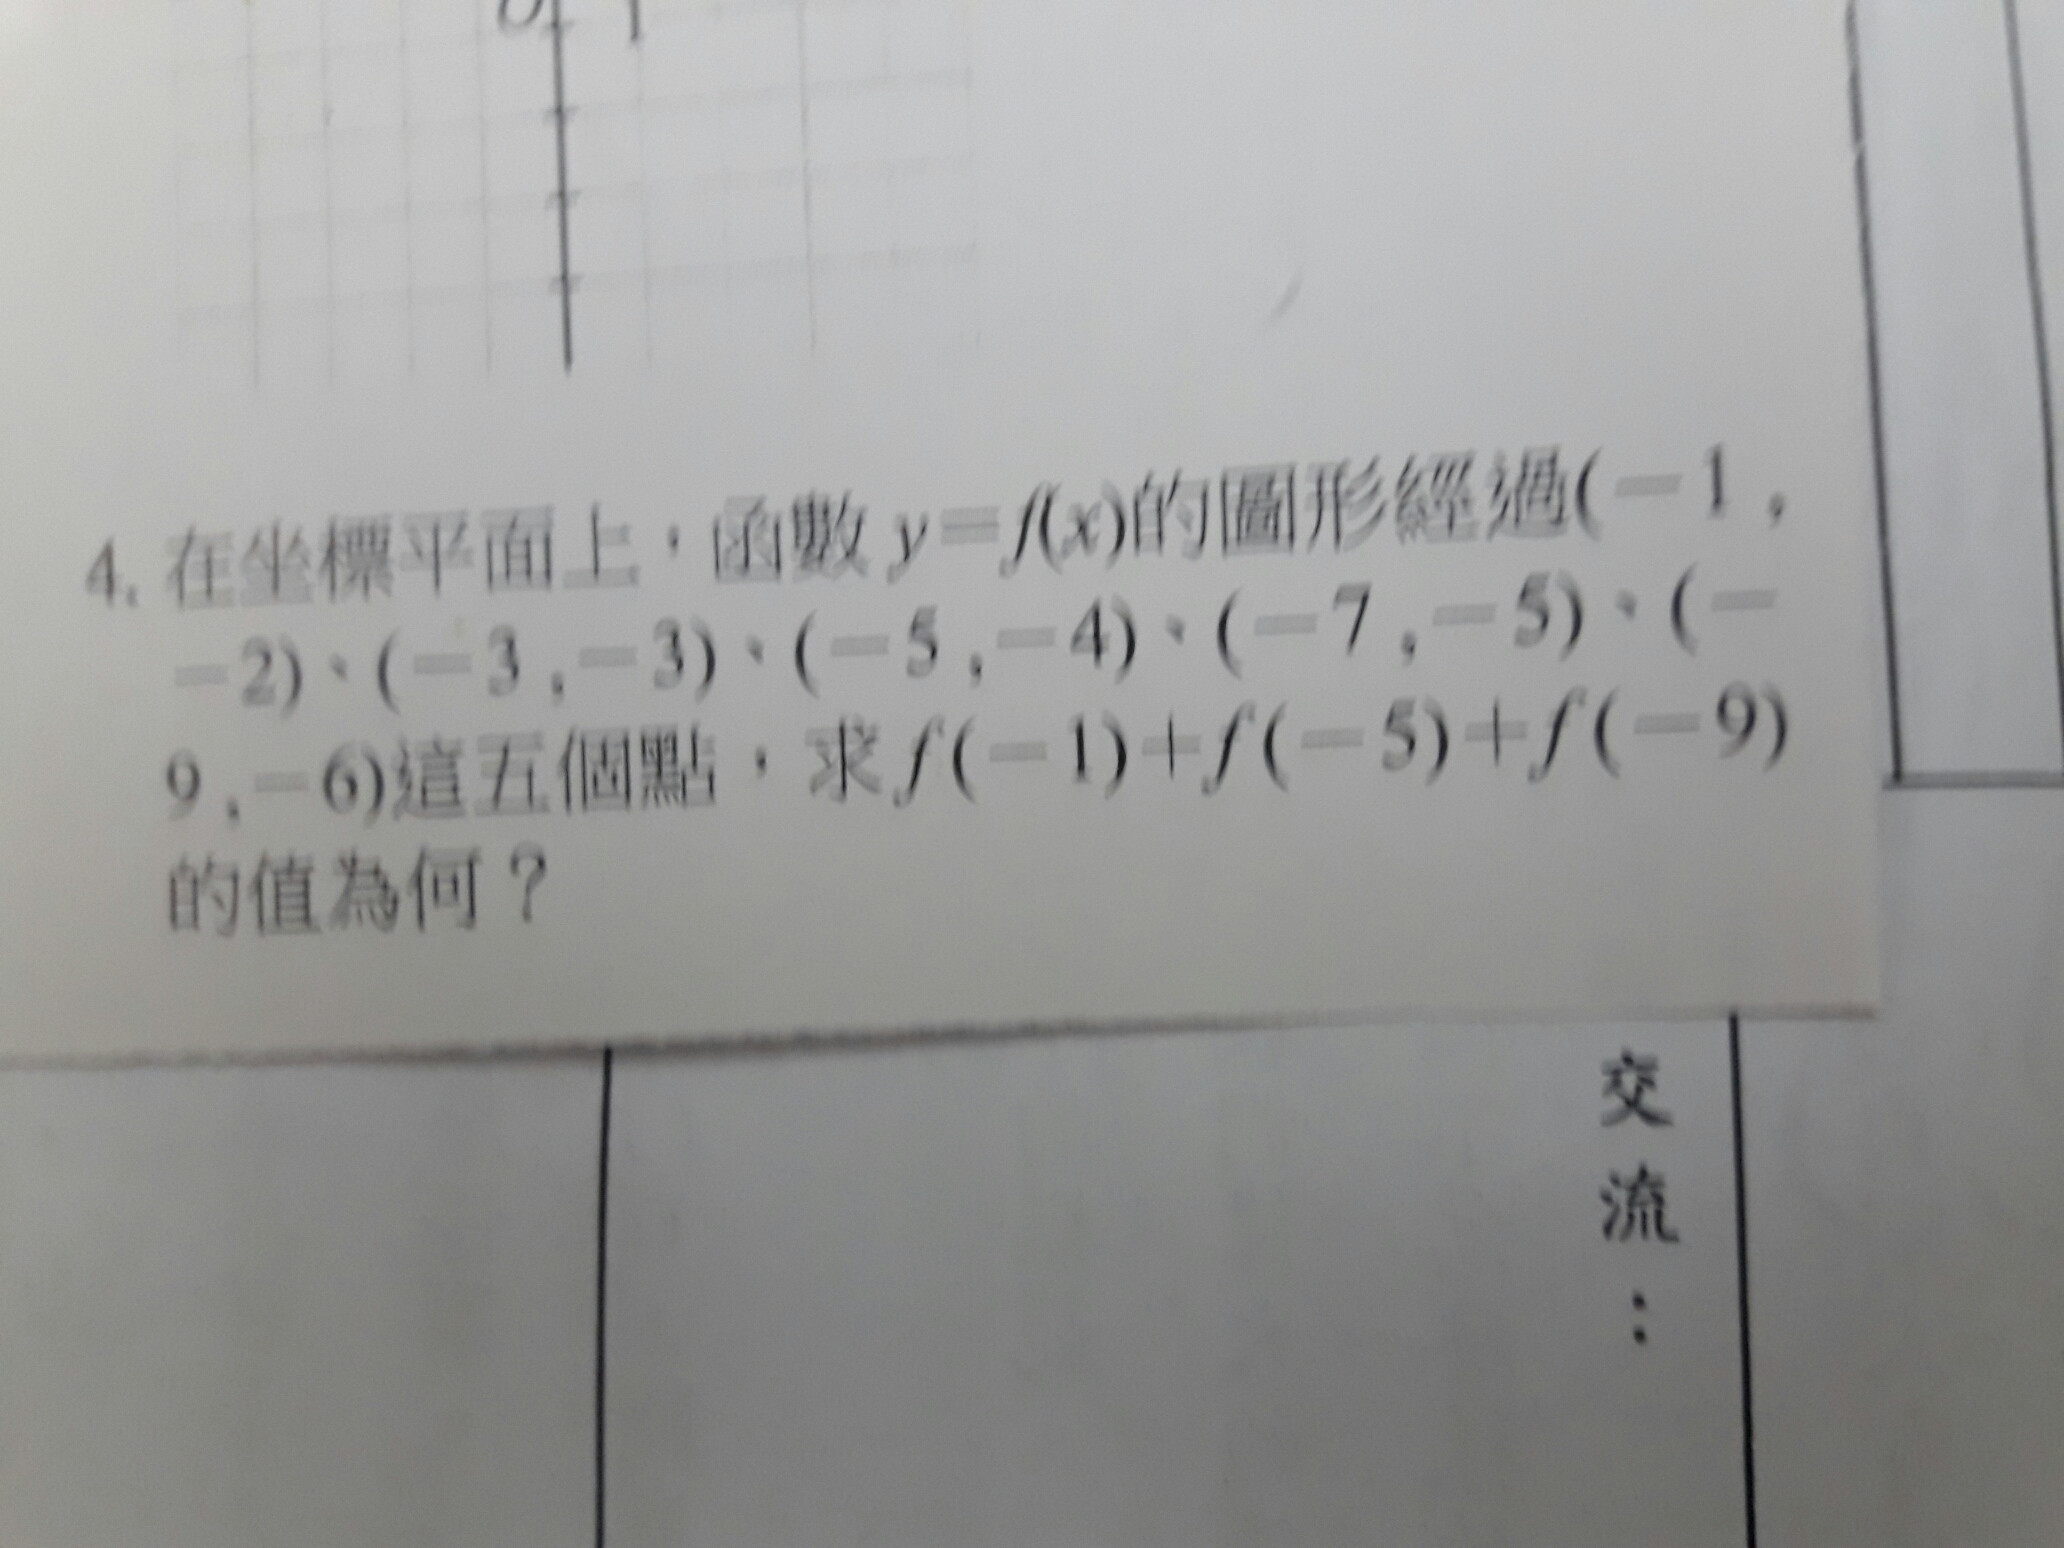 0 1
4. 在坐標平面上，函數 y＝f(x)的圖形經過(－1 ,
－2)、(－3 ,－3)、(－5 ,－4)、(－7 ,－5)、(－
9 ,－6)這五個點，求 f (－1)＋f (－5)＋f (－9)
的值為何？
交
流
：